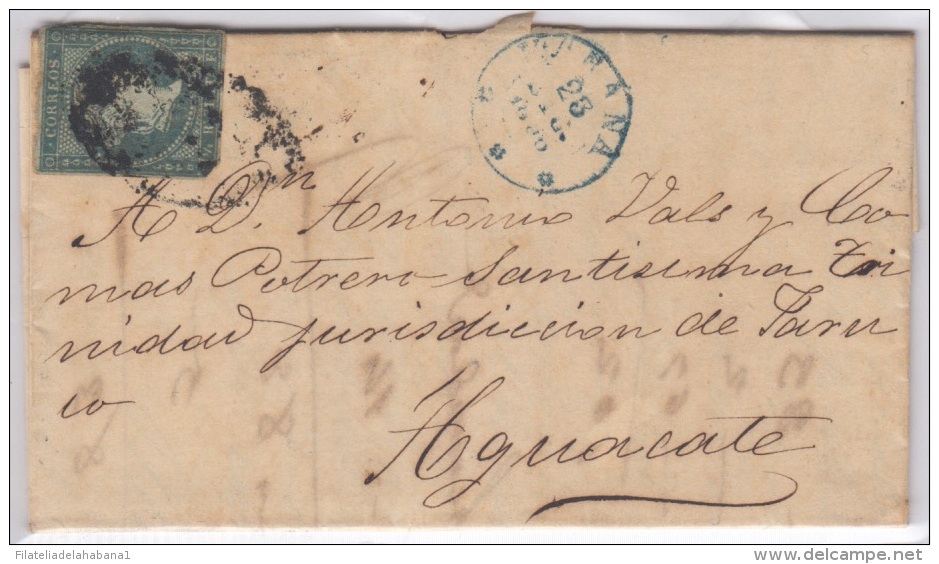 CORREOS
HABANA
23
A Dn. Antonio Vals y Co
mas Potrero Santisima Tri
nidad jurisdiccion de Jaru
co
Aguacate
Filateliadelahabana1
www.delcampe.net